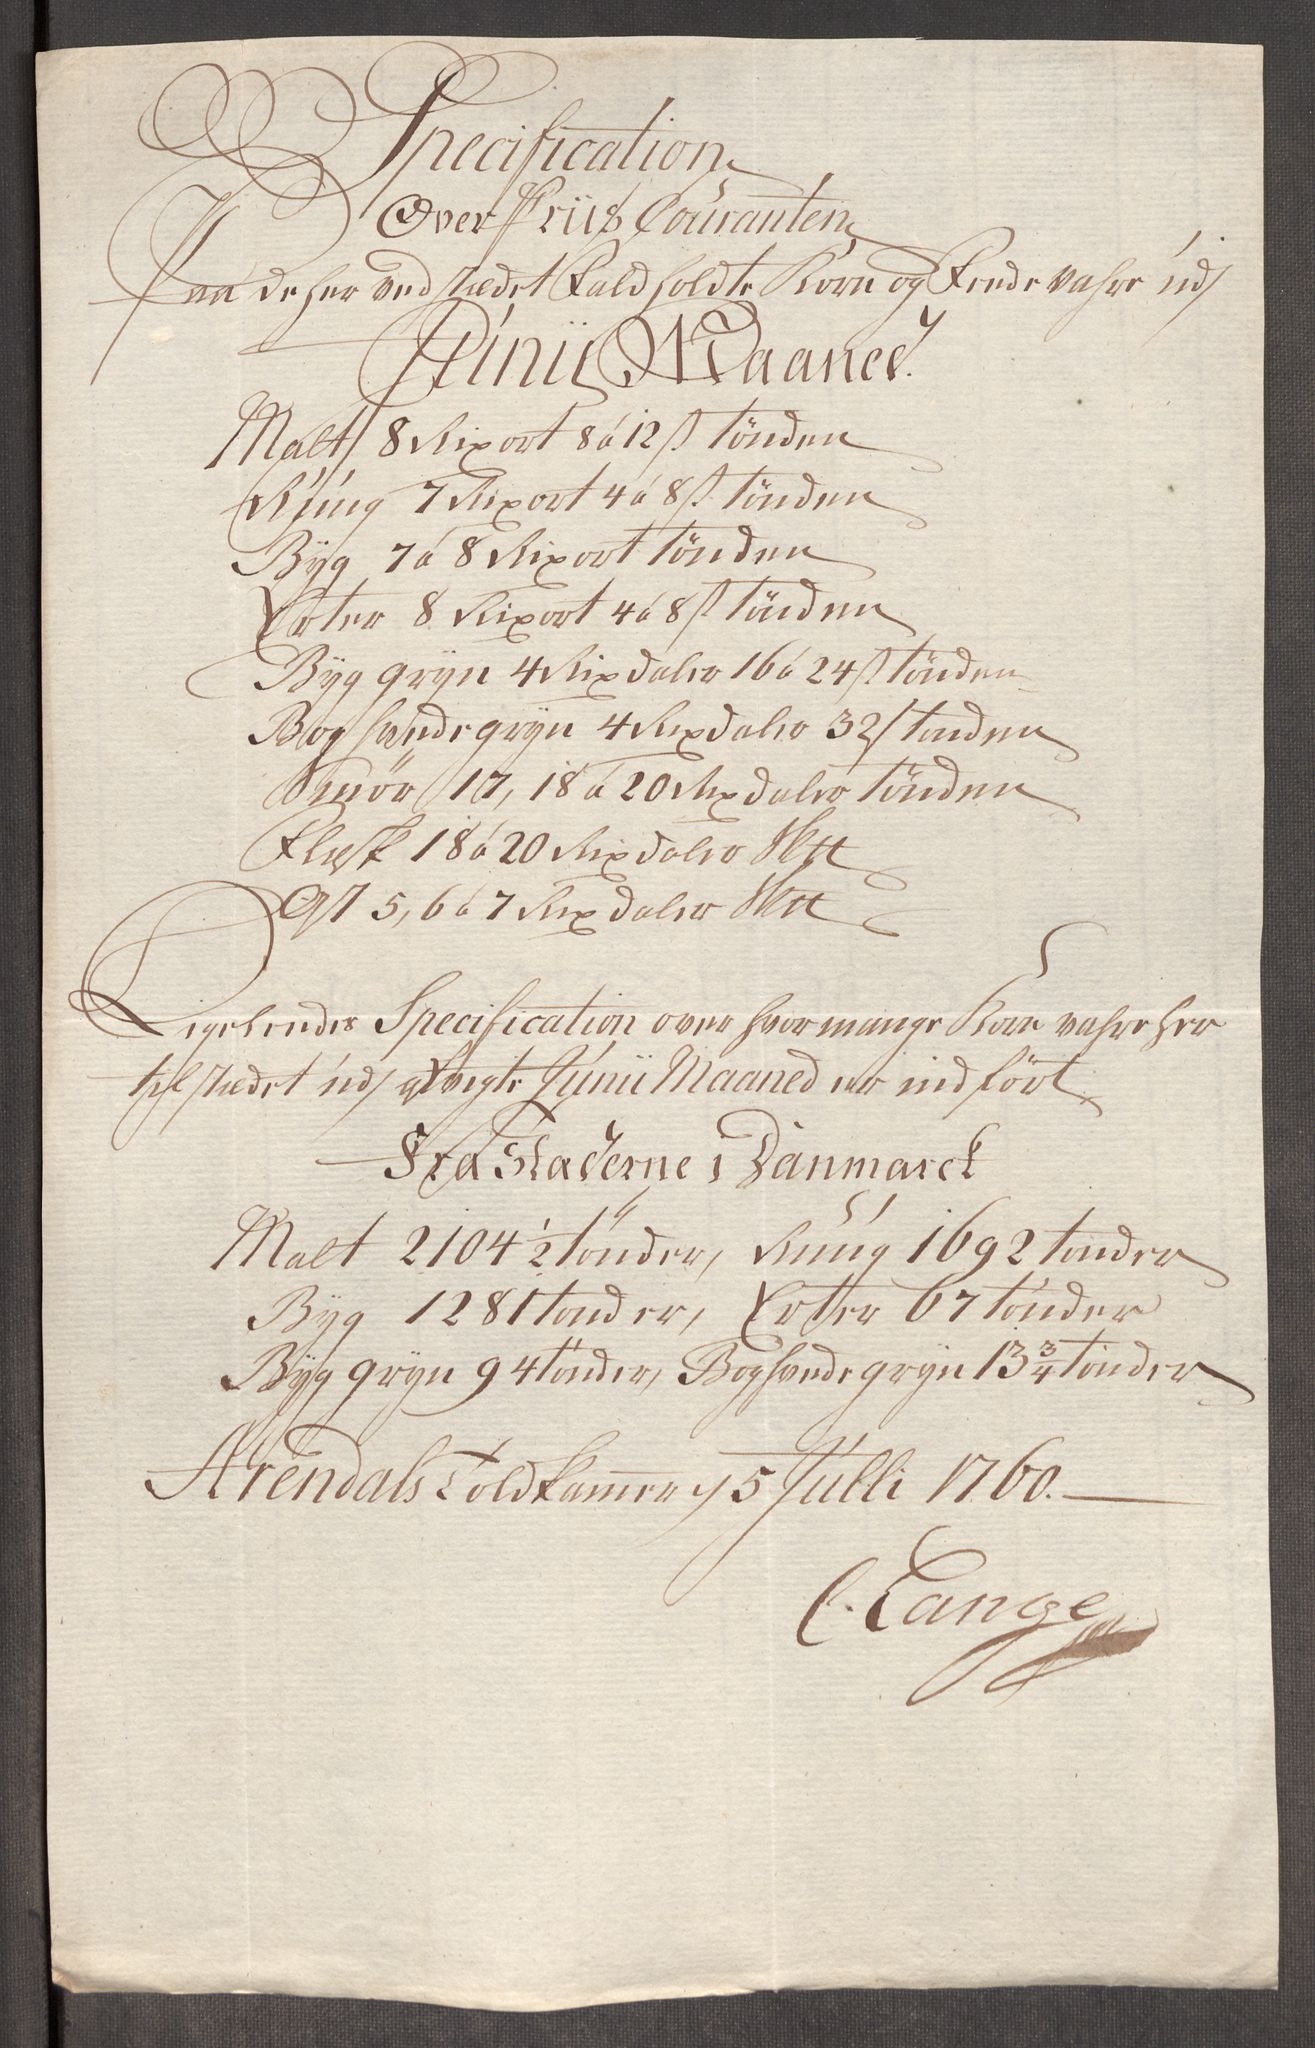 Specification
Over Priis Couranten
Paa de her ved stædet Fald holdte Korn og Fede vahre udj
Junii Maaned.
Malt 8 Rixort 8 á 12 s tönden
Rúúg 7 Rixort 4 á 8 s tönden
Byg 7 á 8 Rixort tönden
Erter 8 Rixort 4 á 8 s tönden
Byg gryn 4 Rixdaler 16 á 24 s tönden
Boghvede gryn 4 Rixdaler 32 s tönden
Smör 17, 18 á 20 Rixdaler tönden
Flesk 18 á 20 Rixdaler
Ost 5, 6 á 7 Rixdaler
Ligeledes Specification over hvor mange Korn vahre her
til stædet udj Junii Maaned er indfört
Fra Stæderne i Danmarck
Malt 2104 1/2 tönder, Rúúg 1692 tönder
Byg 1281 tönder, Erter 67 tönder
Byg gryn 94 tönder, Boghvede gryn 13 3/4 tönder
Arendals Toldkammer 5 Julli 1760.
C. Lange